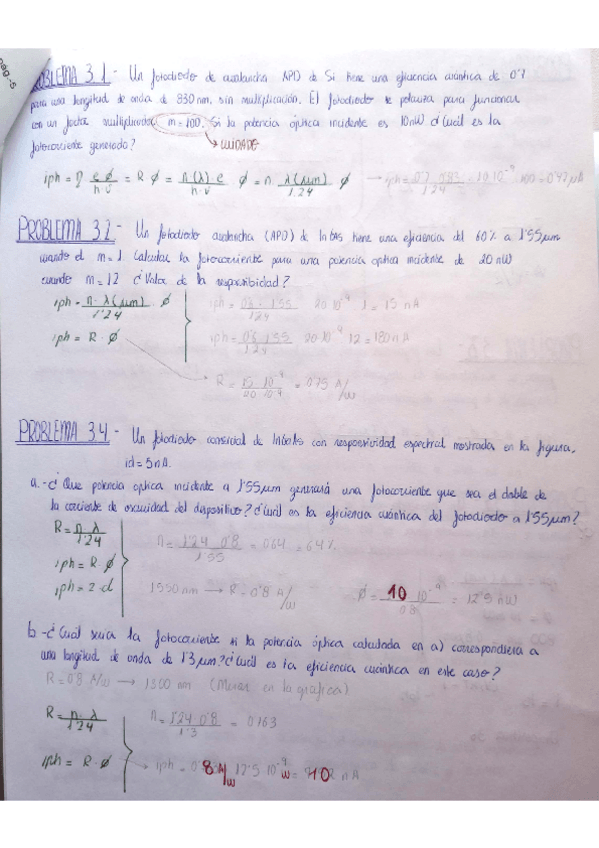 pág-5
PROBLEMA 3.1.- Un fotodiodo de avalancha APD de Si tiene una eficiencia cuántica de 0'7
para una longitud de onda de 830 nm, sin multiplicación. El fotodiodo se polariza para funcionar
con un factor multiplicador m=100. Si la potencia óptica incidente es 10nW ¿Cuál es la
fotocorriente generada?
→ CUIDADO
iph = η e·ϕ / h·v = R ϕ = n(λ) e / h·v ϕ = n λ(μm) / 1'24 ϕ → iph = 0'7 · 0'831 · 10·10⁻⁹ / 1'24 100 = 0'47 μA
PROBLEMA 3.2.- Un fotodiodo avalancha (APD) de InGAs tiene una eficiencia del 60% a 1'55μm
cuando el m=1. Calcular la fotocorriente para una potencia optica incidente de 20 nW
cuando m=12 ¿Valor de la responsibidad?
iph = n·λ(μm) / 1'24 ϕ
iph = 0'6 · 1'55 / 1'24 20·10⁻⁹ 1 = 15 nA
iph = R·ϕ
iph = 0'6 1'55 / 1'24 20·10⁻⁹ 12 = 180nA
R = 15 10⁻⁹ / 20 10⁻⁹ = 0'75 A/W
PROBLEMA 3.4.- Un fotodiodo comercial de InGaAs con responsividad espectral mostrada en la figura,
id=5nA.
a.-¿Que potencia optica incidente a 1'55μm generará una fotocorriente que sea el doble de
la corriente de oscuridad del dispositivo? ¿Cuál es la eficiencia cuántica del fotodiodo a 1'55μm?
R = n λ / 1'24
n = 1'24 0'8 / 1'55 = 0'64 = 64%
iph = R·ϕ
iph = 2·d
1550nm → R=0'8 A/W
ϕ = 10 10⁻⁹ / 0'8 = 12'5 nW
b.-¿Cuál seria la fotocorriente si la potencia óptica calculada en a) correspondiera a
una longitud de onda de 1'3μm? ¿Cuál es la eficiencia cuántica en este caso?
R=0'8 A/W → 1300 nm (Mirar en la grafica)
R = n·λ / 1'24
n = 1'24 0'8 / 1'3 = 0'763
iph = R·ϕ
→ iph = 0'8 A/W 12'5 10⁻⁹ W = 10 nA